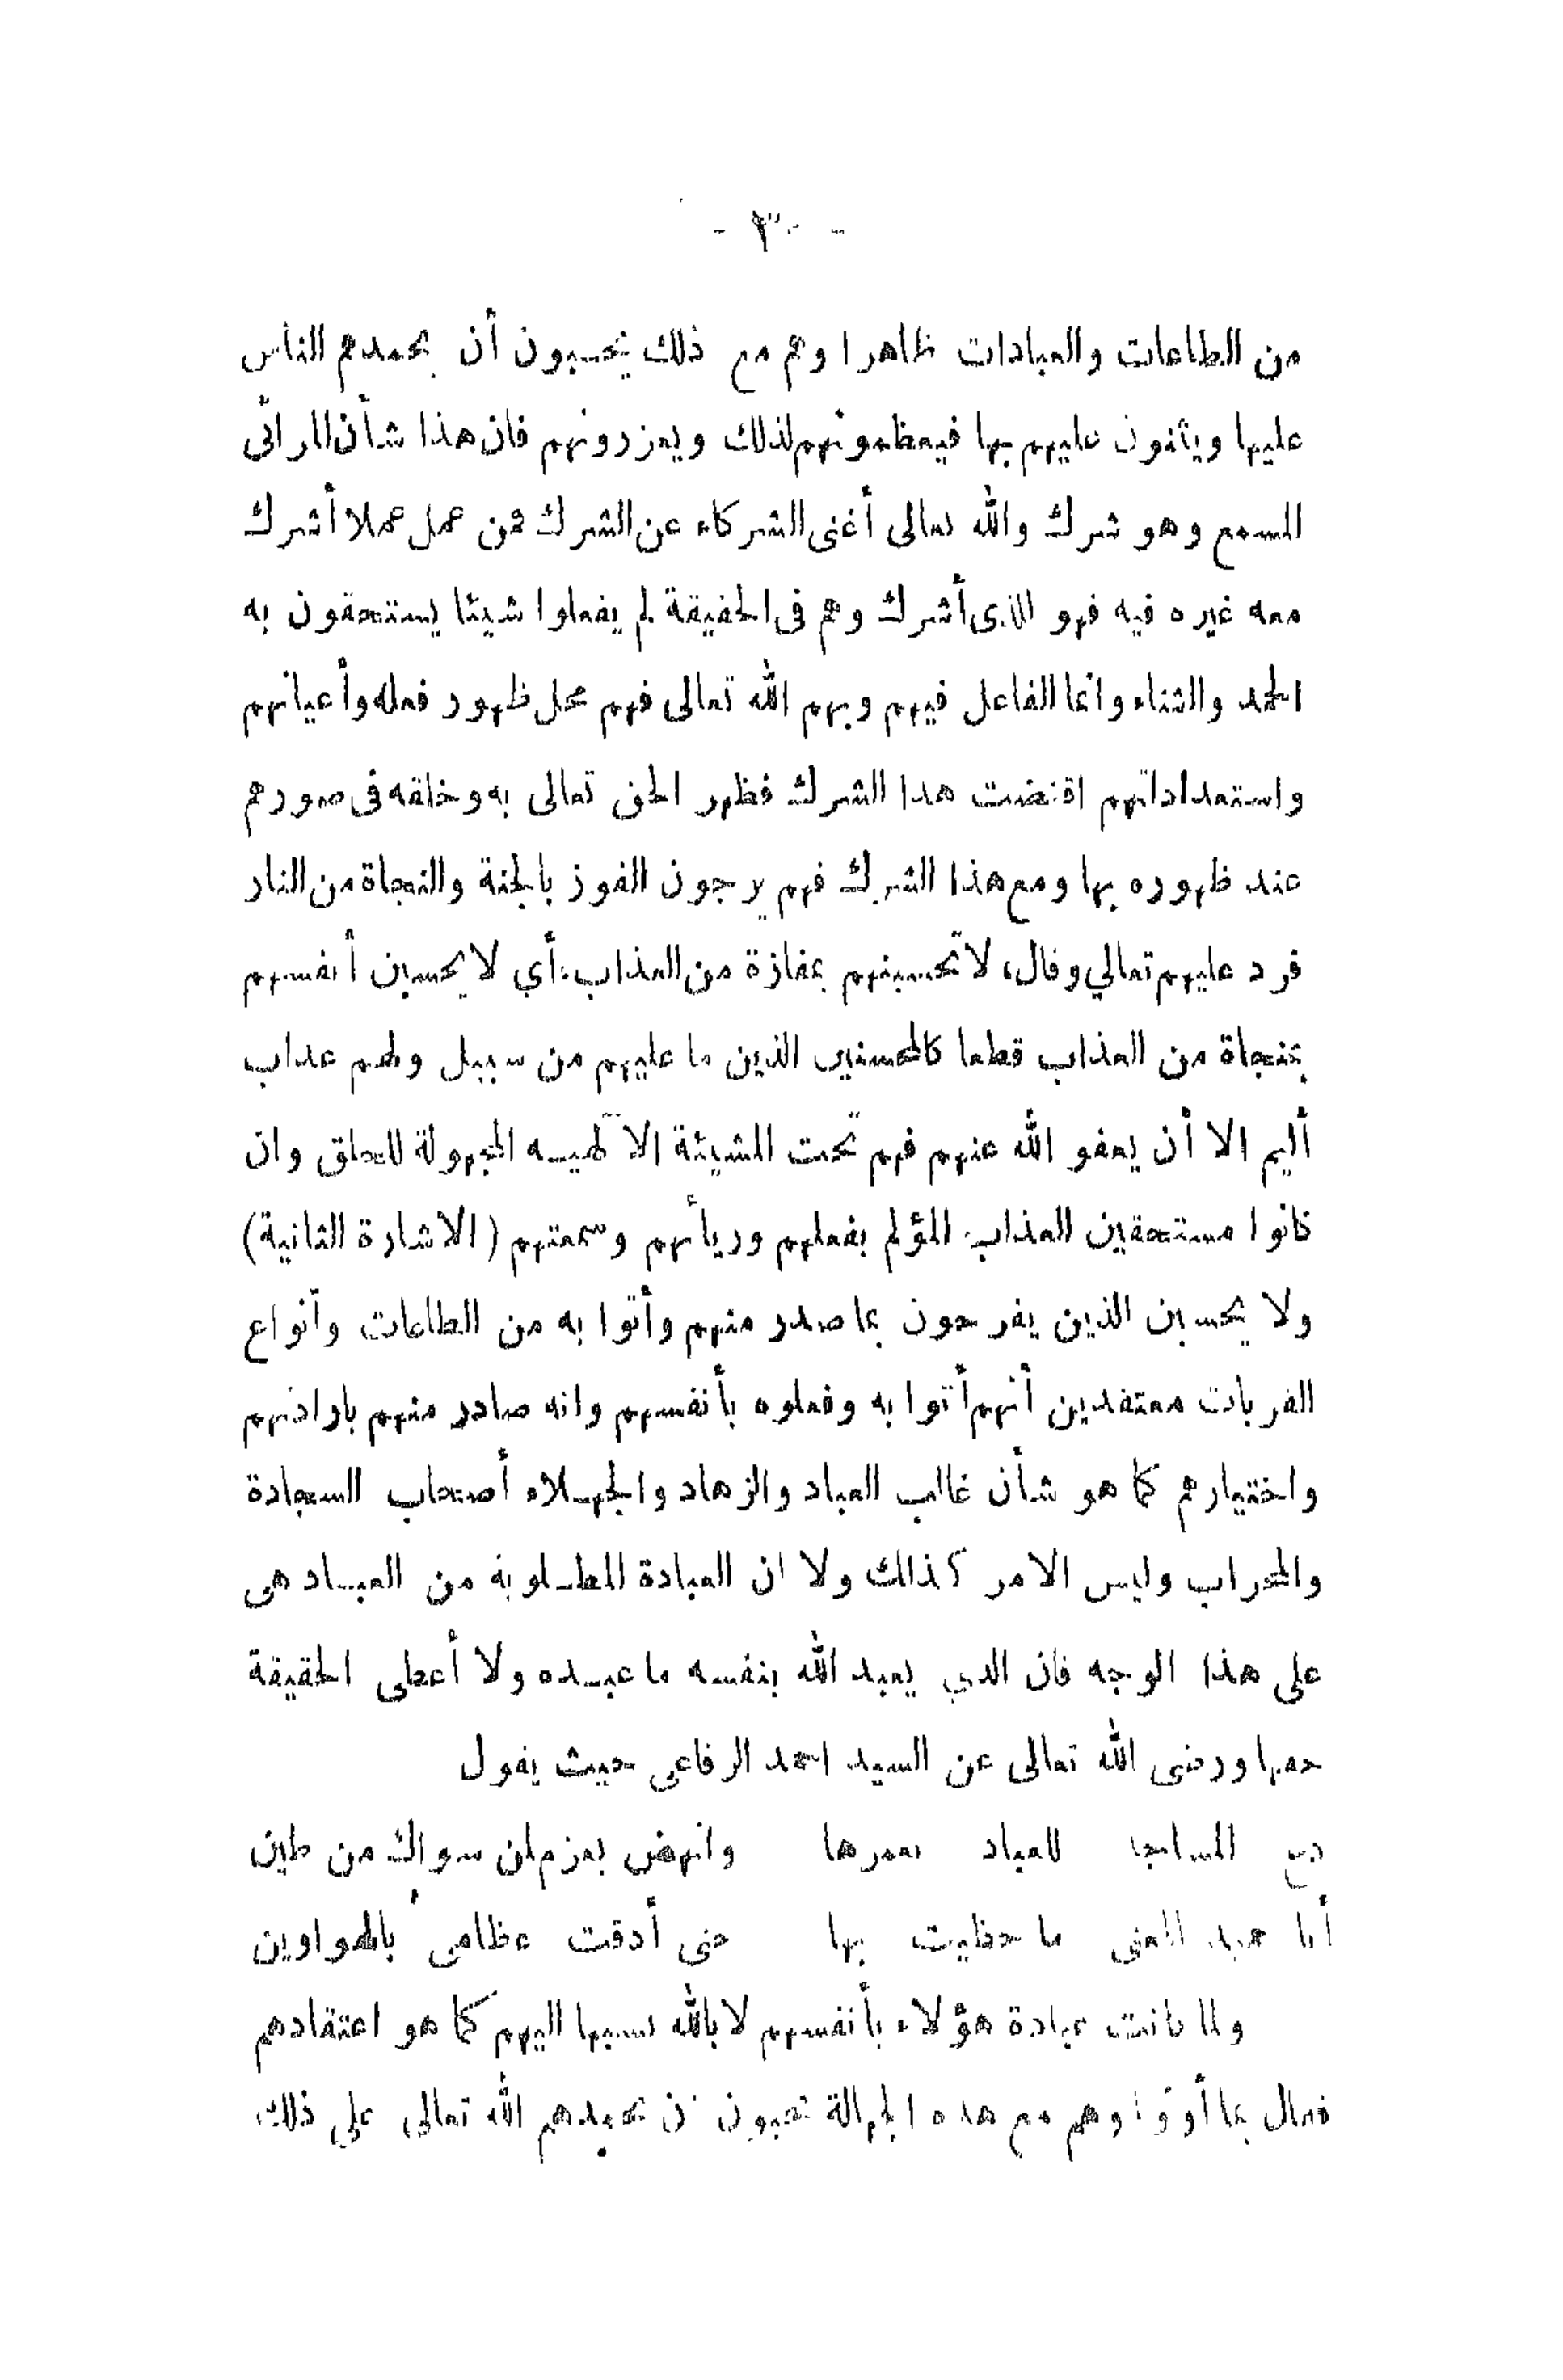 - ٣٠ -
من الطاعات والعبادات ظاهرا وهم مع ذلك يحبون أن يحمدهم الناس
عليها ويثنون عليهم بها فيعظمونهم لذلك ويعزرونهم فان هذا شأن المرائى
المسمع وهو شرك والله تعالى أغنى الشركاء عن الشرك فمن عمل عملا أشرك
معه غيره فيه فهو الذى أشرك وهم فى الحقيقة لم يفعلوا شيئا يستحقون به
الحمد والثناء وانما الفاعل فيهم وبهم الله تعالى فهم محل ظهور فعله وأعيانهم
واستعداداتهم اقتضت هذا الشرك فظهر الحق تعالى به وخلقه فى صورهم
عند ظهوره بها ومع هذا الشرك فهم يرجون الفوز بالجنة والنجاة من النار
فرد عليهم تعالي وقال، لا تحسبنهم بمفازة من العذاب، أي لا يحسبن أنفسهم
بنجاة من العذاب قطعا كالمحسنين الذين ما عليهم من سبيل ولهم عذاب
أليم الا أن يعفو الله عنهم فهم تحت المشيئة الالهيه المجهولة للخلق وان
كانوا مستحقين العذاب المؤلم بفعلهم وريائهم وسمعتهم (الاشارة الثانية)
ولا يحسبن الذين يفرحون بما صدر منهم وأتوا به من الطاعات وأنواع
القربات معتقدين أنهم أتوا به وفعلوه بأنفسهم وانه صادر منهم بارادتهم
واختيارهم كما هو شأن غالب العباد والزهاد والجهلاء أصحاب السجادة
والمحراب وليس الامر كذالك ولا ان العبادة المطلوبة من العباد هى
على هذا الوجه فان الذي يعبد الله بنفسه ما عبده ولا أعطى الحقيقة
حقها ورضى الله تعالى عن السيد احمد الرفاعى حيث يقول
دع المساجد للعباد تعمرها وانهض بعزم سواك من طين
أنا عبد المعنى ما حظيت بها حتى أدقت عظامى بالهواوين
ولما كانت عبادة هؤلاء بأنفسهم لا بالله نسبها اليهم كما هو اعتقادهم
فقال بما أوتوا وهم مع هذه الجهالة يحبون أن يحمدهم الله تعالى على ذلك